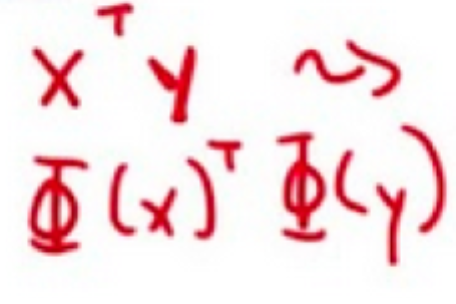 xᵀy ⇝
Φ(x)ᵀ Φ(y)